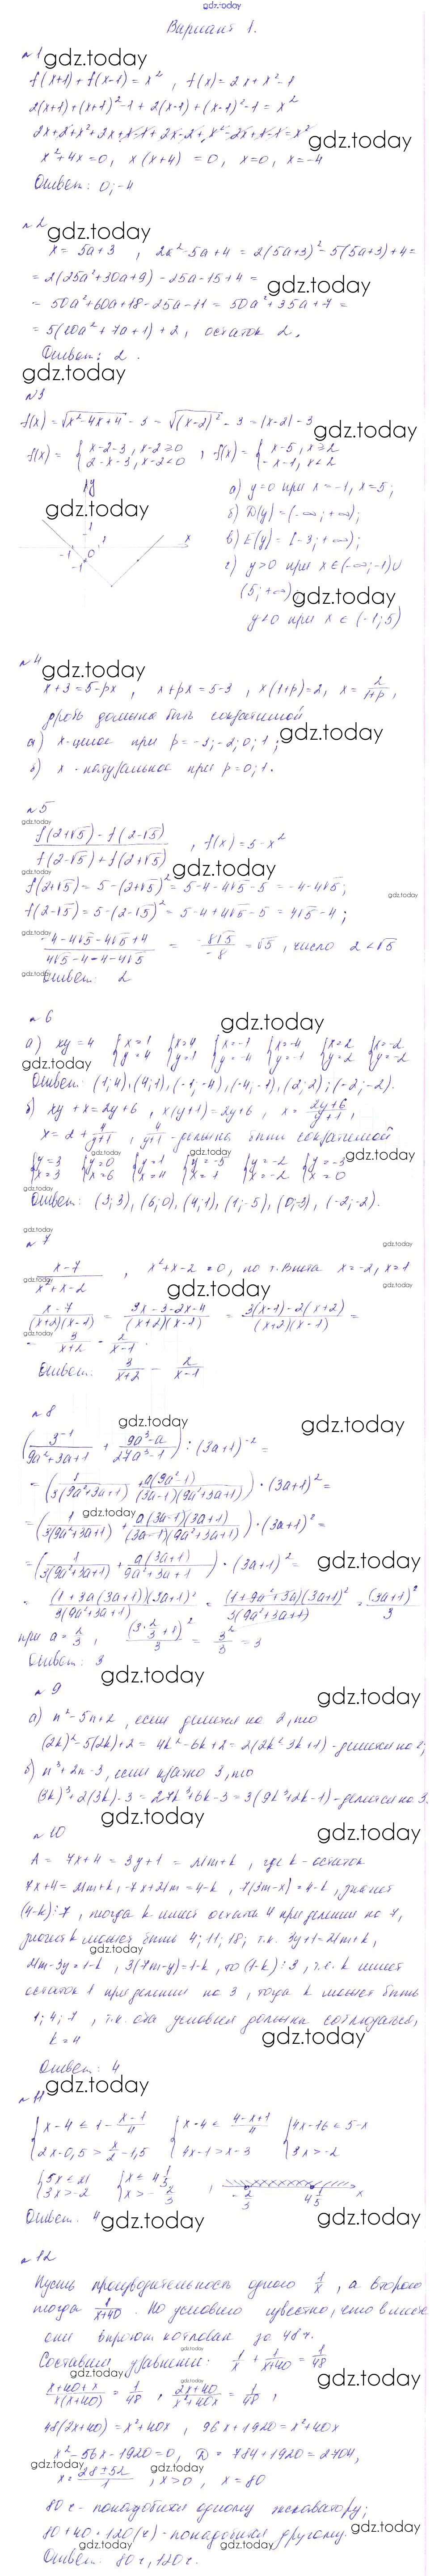 gdz.today
Вариант 1.
№1
f(x+1) + f(x-1) = x², f(x) = 2x + x² - 1
2(x+1) + (x+1)² - 1 + 2(x-1) + (x-1)² - 1 = x²
x² + 4x = 0, x(x+4) = 0, x=0, x=-4
Ответ: 0; -4
№2
x = 5a+3, 2x² - 5x + 4 = 2(5a+3)² - 5(5a+3) + 4 =
= 2(25a² + 30a + 9) - 25a - 15 + 4 =
= 50a² + 60a + 18 - 25a - 11 = 50a² + 35a + 7 =
= 5(10a² + 7a + 1) + 2, остаток 2.
Ответ: 2.
№3
f(x) = √(x² - 4x + 4) - 3 = √((x-2)²) - 3 = |x-2| - 3
f(x) = { x-2-3, x-2≥0 , f(x) = { x-5, x≥2
2-x-3, x-2<0 -x-1, x<2
а) y=0 при x=-1, x=5;
б) D(y) = (-∞; +∞);
в) E(y) = [-3; +∞);
г) y>0 при x∈(-∞;-1)∪
(5; +∞)
y<0 при x∈(-1; 5)
№4
x+3 = 5-px, x+px = 5-3, x(1+p) = 2, x = 2/(1+p),
дробь должна быть сократимой
а) x-целое при p=-3; -2; 0; 1;
б) x-натуральное при p=0; 1.
№5
(f(2+√5) - f(2-√5))/(f(2-√5) + f(2+√5)), f(x) = 5-x²
f(2+√5) = 5-(2+√5)² = 5-4-4√5-5 = -4-4√5;
f(2-√5) = 5-(2-√5)² = 5-4+4√5-5 = 4√5-4;
(-4-4√5-4√5+4)/(4√5-4-4-4√5) = -8√5/-8 = √5, число 2<√5
Ответ: 2
№6
а) xy=4 {x=1 y=4 {x=4 y=1 {x=-1 y=-4 {x=-4 y=-1 {x=2 y=2 {x=-2 y=-2
Ответ: (1;4), (4;1), (-1;-4), (-4;-1), (2;2); (-2;-2).
б) xy+x = 2y+6, x(y+1) = 2y+6, x = (2y+6)/(y+1),
x = 2 + 4/(y+1), 4/(y+1) - должна быть сократимой
{y=3 x=3 {y=0 x=6 {y=1 x=4 {y=-5 x=1 {y=-2 x=-2 {y=-3 x=0
Ответ: (3;3), (6;0), (4;1), (1;-5), (0;-3), (-2;-2).
№7
(x-7)/(x²+x-2), x²+x-2=0, по т.Виета x=-2, x=1
(x-7)/((x+2)(x-1)) = (3x-3-2x-4)/((x+2)(x-1)) = (3(x-1)-2(x+2))/((x+2)(x-1)) =
= 3/(x+2) - 2/(x-1).
Ответ: 3/(x+2) - 2/(x-1)
№8
(3⁻¹/(9a²+3a+1) + (9a³-a)/(27a³-1)) : (3a+1)⁻² =
= (1/(3(9a²+3a+1)) + a(9a²-1)/((3a-1)(9a²+3a+1))) · (3a+1)² =
= (1/(3(9a²+3a+1)) + a(3a-1)(3a+1)/((3a-1)(9a²+3a+1))) · (3a+1)² =
= (1/(3(9a²+3a+1)) + a(3a+1)/(9a²+3a+1)) · (3a+1)² =
= (1+3a(3a+1))(3a+1)²/(3(9a²+3a+1)) = (1+9a²+3a)(3a+1)²/(3(9a²+3a+1)) = (3a+1)²/3
при a=2/3, (3·2/3+1)²/3 = 3²/3 = 3
Ответ: 3
№9
а) n²-5n+2, если делится на 2, то
(2k)²-5(2k)+2 = 4k²-6k+2 = 2(2k²-3k+1) - делится на 2;
б) n³+2n-3, если кратно 3, то
(3k)³+2(3k)-3 = 27k³+6k-3 = 3(9k³+2k-1) - делится на 3.
№10
A = 7x+4 = 3y+1 = 21m+k, где k-остаток
7x+4 = 21m+k, -7x+21m = 4-k, 7(3m-x) = 4-k, значит
(4-k)⋮7, тогда k имеет остаток 4 при делении на 7,
значит k может быть 4; 11; 18; т.к. 3y+1=21m+k,
21m-3y=1-k, 3(7m-y)=1-k, то (1-k)⋮3, т.е. k имеет
остаток 1 при делении на 3, тогда k может быть
1; 4; 7, т.к. оба условия должны соблюдаться,
k=4
Ответ: 4
№11
{x-4 ≤ 1-(x-1)/4 {x-4 ≤ (4-x+1)/4 {4x-16 ≤ 5-x
2x-0,5 > x/2-1,5 4x-1 > x-3 3x>-2
{5x≤21 {x≤4 1/5
3x>-2 x>-2/3
Ответ: 4
№12
Пусть производительность одного 1/x, а второго
тогда 1/(x+40). По условию известно, что вместе
они выроют котлован за 48 ч.
Составим уравнение: 1/x + 1/(x+40) = 1/48
(x+40+x)/(x(x+40)) = 1/48, (2x+40)/(x²+40x) = 1/48,
48(2x+40) = x²+40x, 96x+1920 = x²+40x
x²-56x-1920=0, D=784+1920=2704,
x = (28±52)/1, x>0, x=80
80 ч - понадобится одному экскаватору;
80+40=120(ч) - понадобится другому.
Ответ: 80 ч, 120 ч.